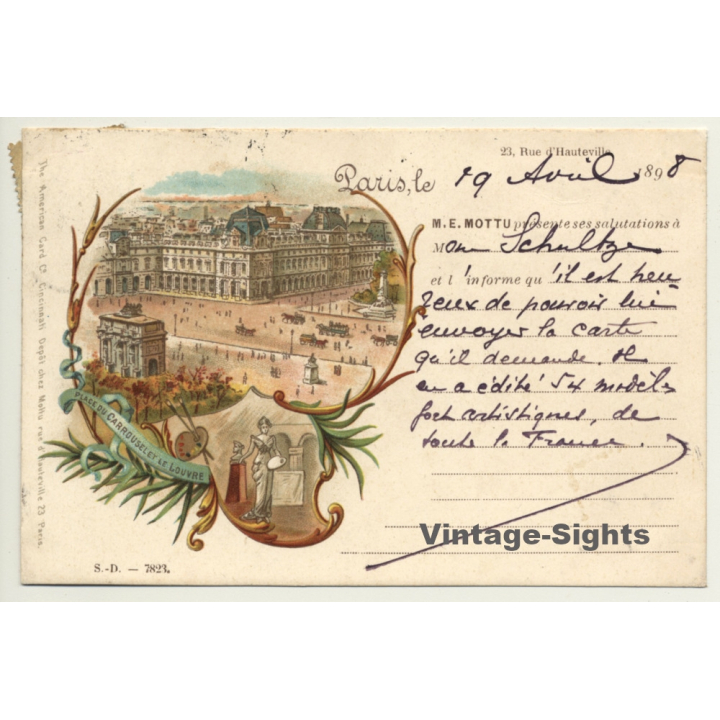 23, Rue d'Hauteville
Paris, le 19 Avril 1898
M.E. MOTTU présente ses salutations à
Mon Schultze
et l'informe qu'il est heu-
reux de pouvoir lui
envoyer la carte
qu'il demande. Il
en a édité 54 modèles
fort artistiques, de
toute la France.
PLACE DU CARROUSEL ET LE LOUVRE
S.-D. — 7823.
The American Card Co Cincinnati. Depôt chez Mottu rue d'Hauteville 23 Paris.
Vintage-Sights